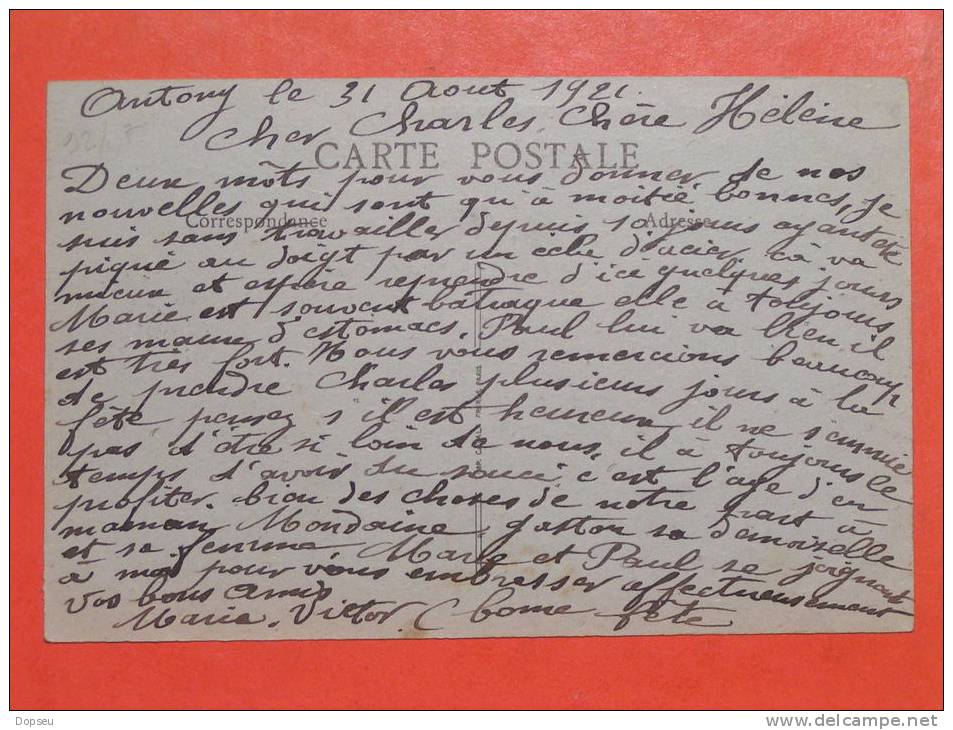 Antony le 31 Aout 1921.
Cher Charles, Chère Hélène
CARTE POSTALE
Deux môts pour vous donner de nos
nouvelles qui sont qu'à moitié bonnes, je
Correspondance
Adresse
suis sans travailler depuis jours ayant été
piqué au doigt par un d'acier, ça va
mieux et espère reprendre d'ici quelques jours
Marie est souvent elle à toujours
ses maux d'estomacs, Paul lui va bien il
est très fort. Nous vous remercions beaucoup
de prendre Charles plusieurs jours à la
fête, pensez s'il est heureux, il ne s'ennuie
pas d'être si loin de nous, il à toujours le
temps d'avoir du souci, c'est l'âge d'en
profiter, bien des choses de notre part à
maman, Mondaine, gaston sa demoiselle
et sa femme, et Paul se joignent
à moi pour vous embrasser affectueusement
Vos bons Amis
Marie. Victor. (bonne fête
Dopseu
www.delcampe.net